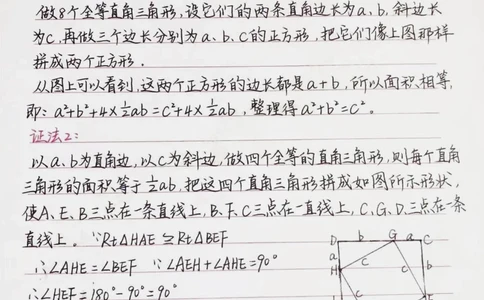 做8个全等直角三角形,设它们的两条直角边长为a、b,斜边长
为c,再做三个边长分别为a、b、c的正方形,把它们像上图那样
拼成两个正方形.
从图上可以看到,这两个正方形的边长都是a+b,所以面积相等,
即:a²+b²+4×½ab=c²+4×½ab,整理得a²+b²=c²。
证法2:
以a、b为直角边,以c为斜边,做四个全等的直角三角形,则每个直角
三角形的面积等于½ab,把这四个直角三角形拼成如图所示形状,
使A、E、B三点在一条直线上,B、F、C三点在一直线上,C、G、D三点在一条
直线上。∵Rt△HAE≌Rt△BEF
∴∠AHE=∠BEF ∵∠AEH+∠AHE=90°
∴∠HEF=180°-90°=90°
D b G a C
a c
H c b
c